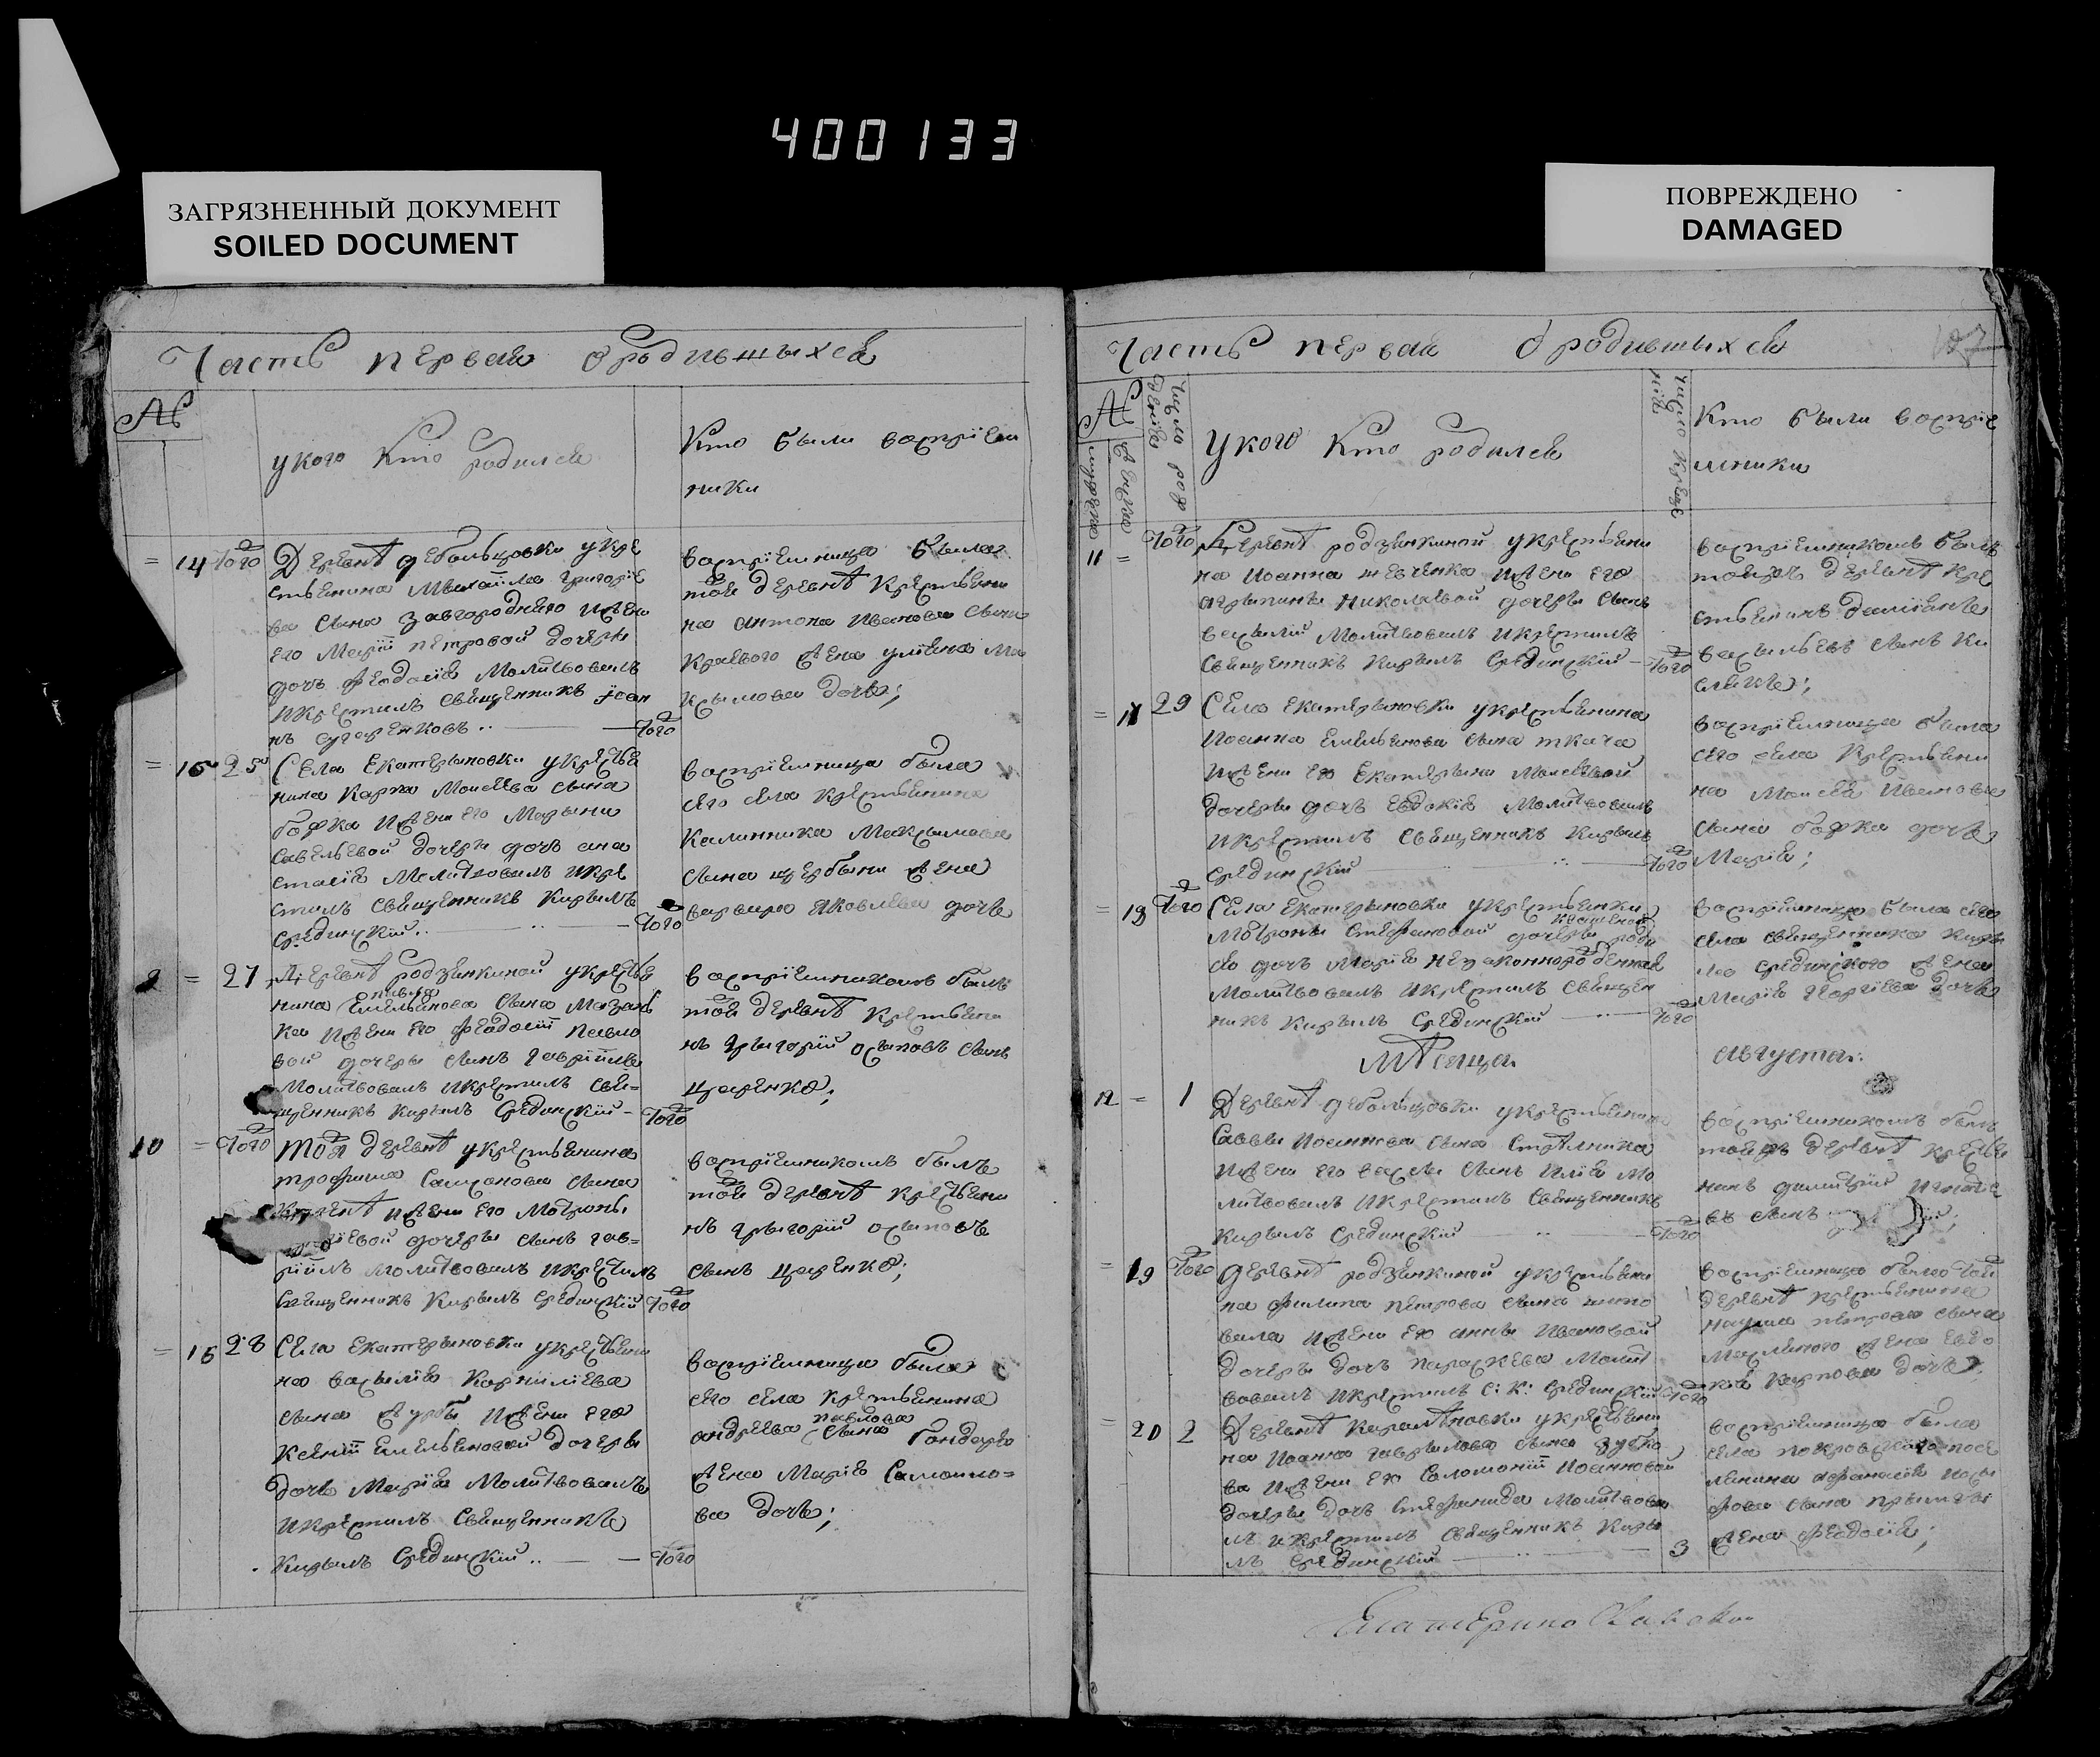 400133
ЗАГРЯЗНЕННЫЙ ДОКУМЕНТ
SOILED DOCUMENT
ПОВРЕЖДЕНО
DAMAGED
Часть первая о родившыхся
№
у кого кто родился
Кто были воспрiем
ники
= 14 того Деревнѣ дебальцовки у кре
стьянина Михайла Григорiе
ва сына Завгороднего и жени
его Марiи петровой дочери
дочь Феодосiя Молитвовалъ
и крестилъ священникъ Iоан
нъ
того
воспрiемница была
той деревнѣ крестьяни
на антона иванова сына
жена улiяна Ма
ксымова дочь;
= 15 25 Села Екатерыновки у крестья
нина Карпа Моисеева сына
божка и жени его Марыни
савельевой дочери дочь ана
стасiя Молитвовалъ и кре
стилъ священникъ Кирылъ
Срединскiй
того
воспрiемница была
сего села крестьянина
Калинника Максымова
сына щербыни жена
варвара Яковлева дочь
9 = 27 Деревнѣ родзянкиной у крестья
нина Емельянова сына Мазань
павла
ка и жени его Феодосiи павло
вой дочеры сынъ гаврiилъ
Молитвовалъ и крестилъ свя=
щенникъ Кирылъ Срединскiй
того
воспрiемникомъ былъ
той деревнѣ крестьяни
нъ Грыгорiй осыповъ сынъ
Царенко;
10 = того Той деревнѣ у крестьянина
трофима Самсонова сына
и жени его Мотроны
дочеры сынъ гав=
рiилъ молитвовалъ и крестилъ
священникъ Кирылъ Срединскiй
того
воспрiемникомъ былъ
той деревнѣ крестьяни
нъ Грыгорiй осыповъ
сынъ Царенко;
= 16 28 Села Екатерыновки у крестьяни
на васылiя Корнилiева
сына Журбы и жени его
Ксенiи Емельяновой дочеры
дочь Марiя Молитвовалъ
и крестилъ священникъ
Кирылъ Срединскiй
того
воспрiемница была
сего села крестьянина
павлова
андреева сына бондаря
жена Марiя Самойло=
ва дочь;
Часть первая о родившыхся
№
мужеска
женска
Число рож
денiя
У кого кто родился
число креще
нiя
Кто были воспрiе
мники
11 = того Деревнѣ родзянкиной у крестьяни
на Иоанна шевченка и жени его
агрыпины николаевой дочеры сынъ
васылiй Молитвовалъ и крестилъ
священникъ Кирылъ Срединскiй
того
воспрiемникомъ былъ
тоижъ деревнѣ кре
стьянинъ
васыльевъ сынъ
= 17 29 Села Екатерыновки у крестьянина
Иоанна Емельянова сына ткача
и жени его Екатерыны Моисеевой
дочеры дочь Евдокiя Молитвовалъ
и крестилъ священникъ Кирылъ
Срединскiй
того
воспрiемница была
сего села крестьяни
на Моисея иванова
сына божка дочь
Марiя;
= 18 того Села Екатерыновки у крестьянки
Мотроны Стефановой дочеры
дочь Марiя незаконнорожденная
Молитвовалъ и крестилъ священ
никъ Кирылъ Срединскiй
того
воспрiемница была сего
села священника Киры
ла Срединского жена
Марiя Георгiева дочь
Мѣсяца августа:
12 = 1 Деревнѣ дебальцовки у крестьянина
Саввы Иоаннова сына Стрѣлника
и жени его васы сынъ Илiя Мо
литвовалъ и крестилъ священникъ
Кирылъ Срединскiй
того
воспрiемникомъ былъ
тоижъ деревнѣ крестья
нинъ димитрiй
въ сынъ
= 19 того Деревнѣ родзянкиной у крестьяни
на Филипа петрова сына
вала и жени его анны ивановой
дочеры дочь параскева Молит
вовалъ и крестилъ С: К: Срединскiй
того
воспрiемница была той
деревнѣ крестьянина
наума петрова сына
жена Евдо
кiя карпова дочь;
= 20 2 Деревнѣ у крестьяни
на Иоанна гаврылова сына зубко
ва и жени его Соломонiи Иоанновой
дочеры дочь Стефанида Молитвова
лъ и крестилъ священникъ Киры
лъ Срединскiй
3
воспрiемница была
села покровского посе
лянина афанасiя
сына
жена Феодосiя;
Екатерино